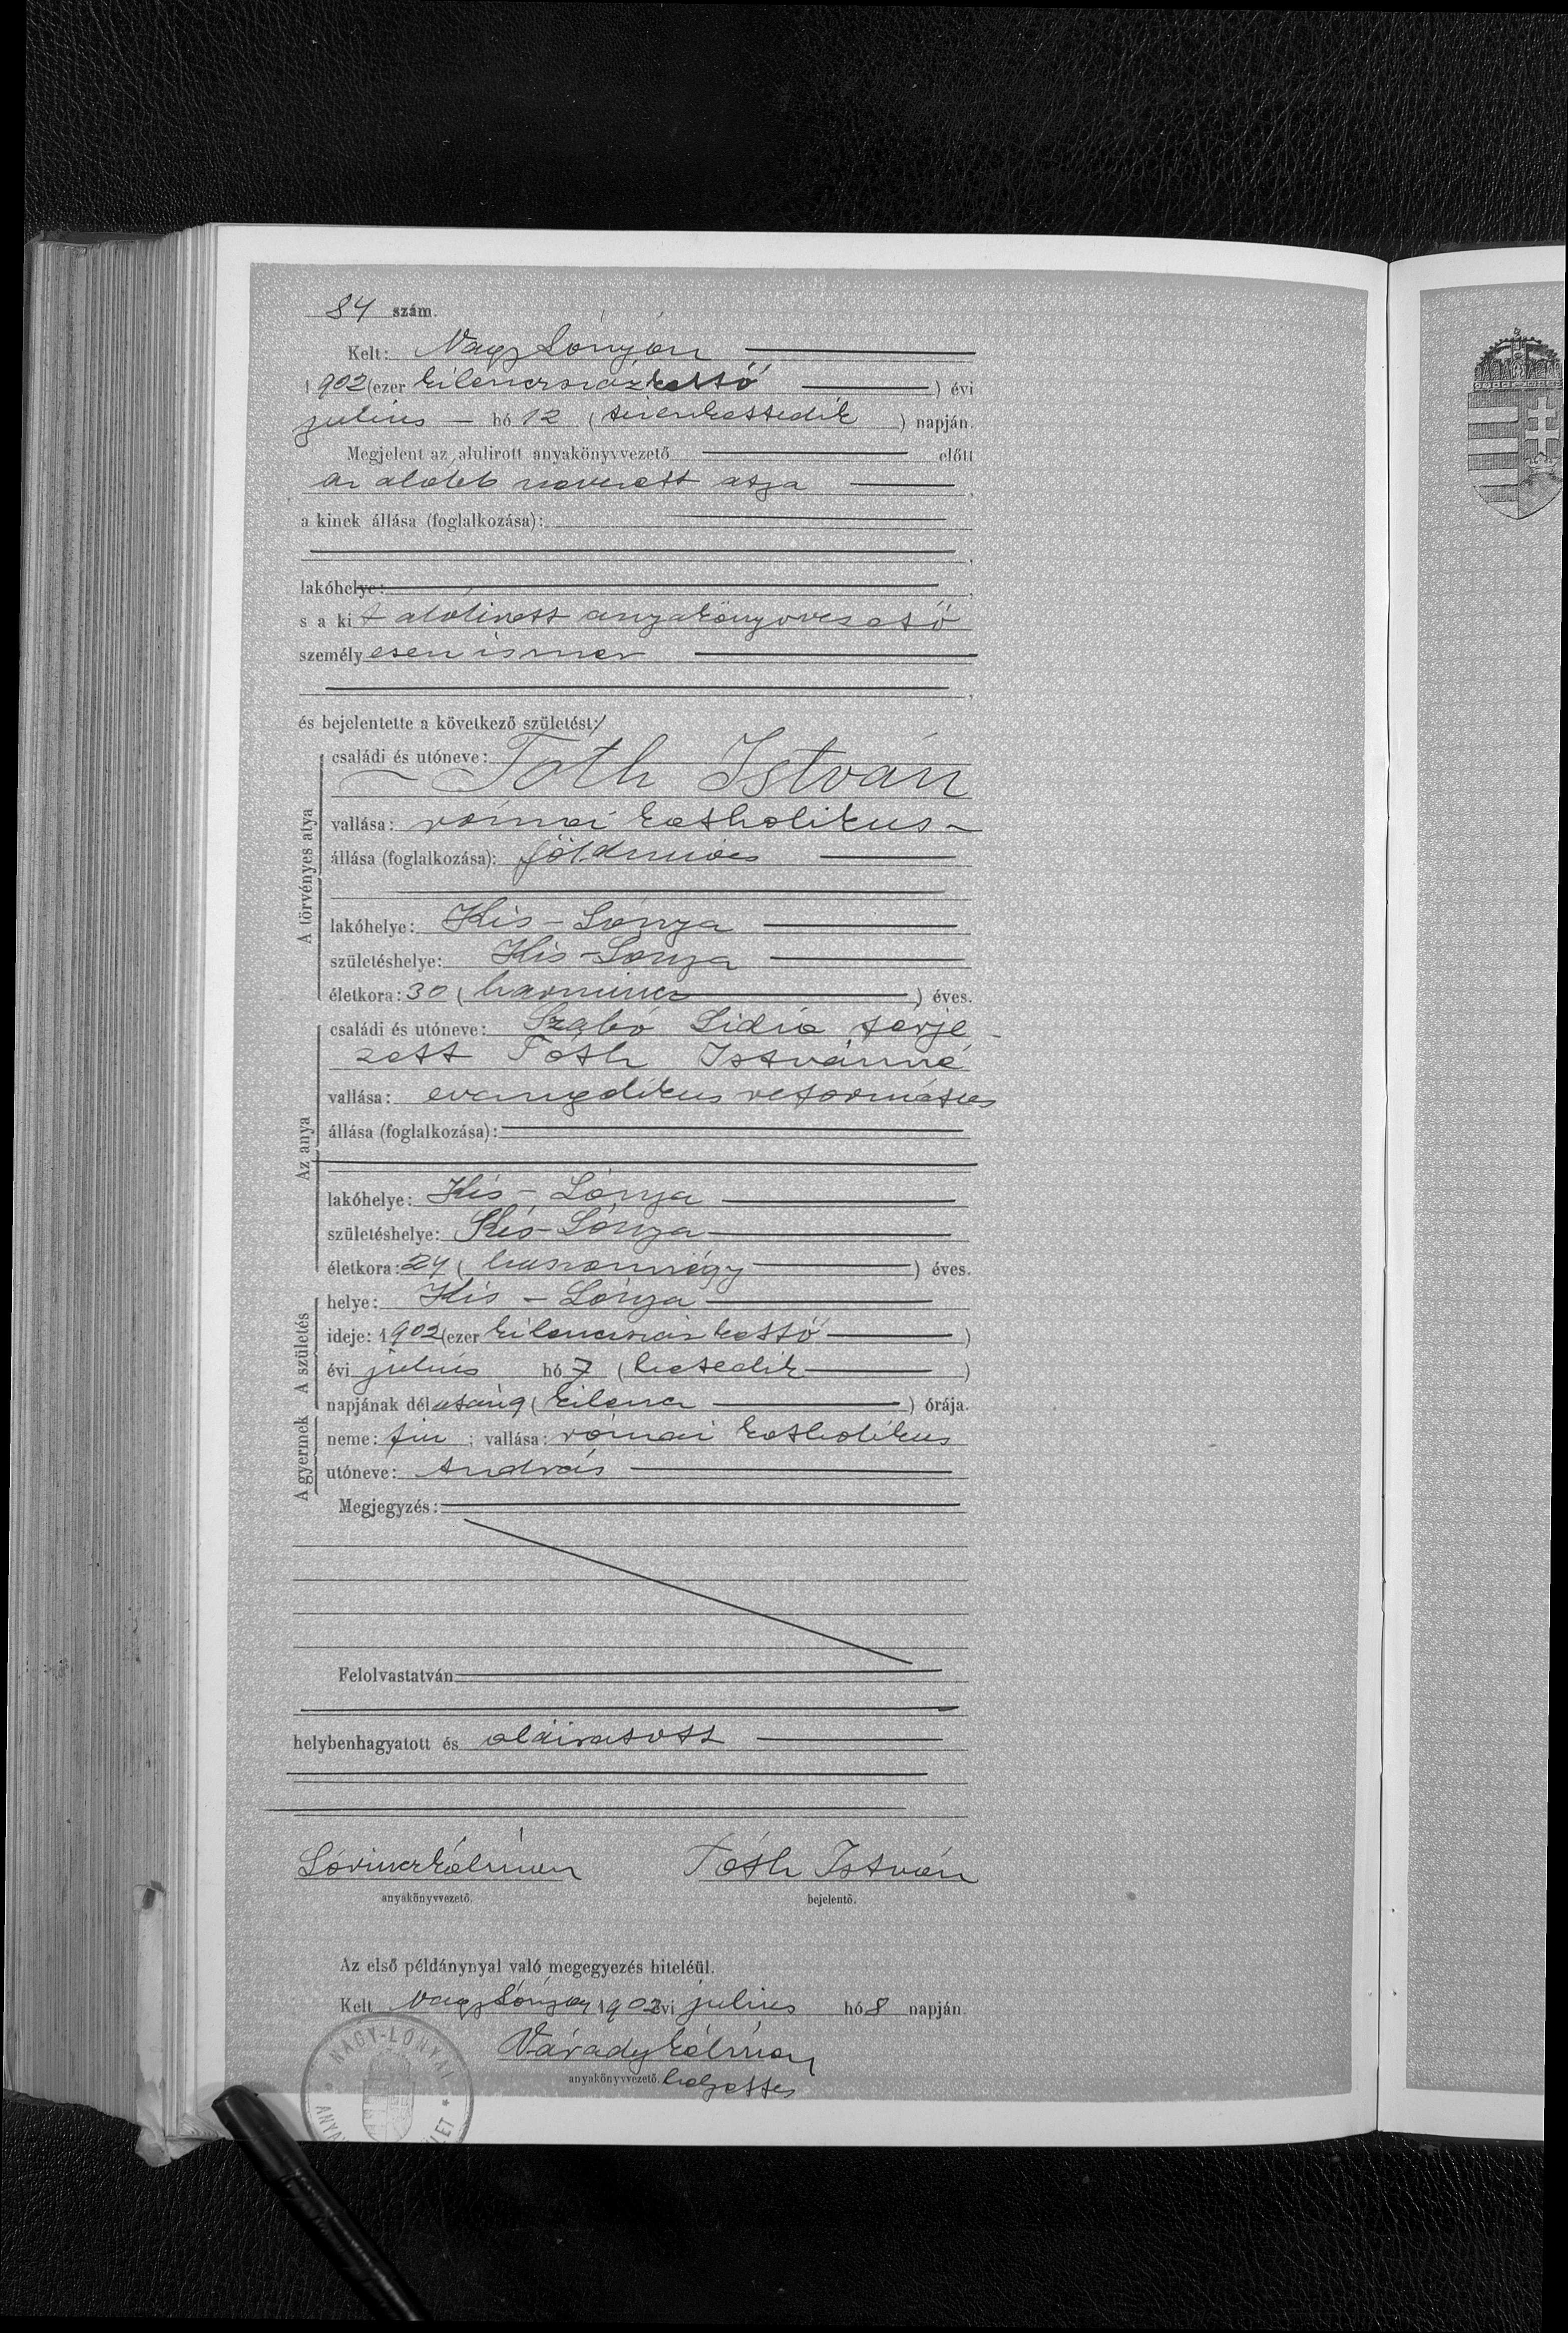 84 szám.
Kelt: Nagy Lónyán
1902 (ezer kilencszázkettő) évi
julius hó 12 (tizenkettedik) napján.
Megjelent az alulirott anyakönyvvezető előtt
az alább nevezett atya,
a kinek állása (foglalkozása):
lakóhelye:
s a kit alólirott anyakönyvvezető
személyesen ismer
és bejelentette a következő születést:
A törvényes atya
családi és utóneve:
Toth István
vallása: római katholikus
állása (foglalkozása): földmives
lakóhelye: Kis-Lónya
születéshelye: Kis-Lónya
életkora: 30 (harmincz) éves.
Az anya
családi és utóneve: Szabó Lidia férje-
zett Tóth Istvánné
vallása: evangelikus református
állása (foglalkozása):
lakóhelye: Kis-Lónya
születéshelye: Kis-Lónya
életkora: 24 (huszonnégy) éves.
A születés
helye: Kis-Lónya
ideje: 1902 (ezer kilenczszáz kettő)
évi julius hó 7 (hetedik)
napjának délután 9 (kilencz) órája.
A gyermek
neme: fiu; vallása: római katholikus
utóneve: András
Megjegyzés:
Felolvastatván
helybenhagyatott és aláiratott
Lőrincz Kálmán Tóth István
anyakönyvvezető. bejelentő.
Az első példánynyal való megegyezés hiteléül.
Kelt Nagy Lónyán 1902 évi julius hó 8 napján.
Várady Kálmán
anyakönyvvezető. helyettes
NAGY-LÓNYAI